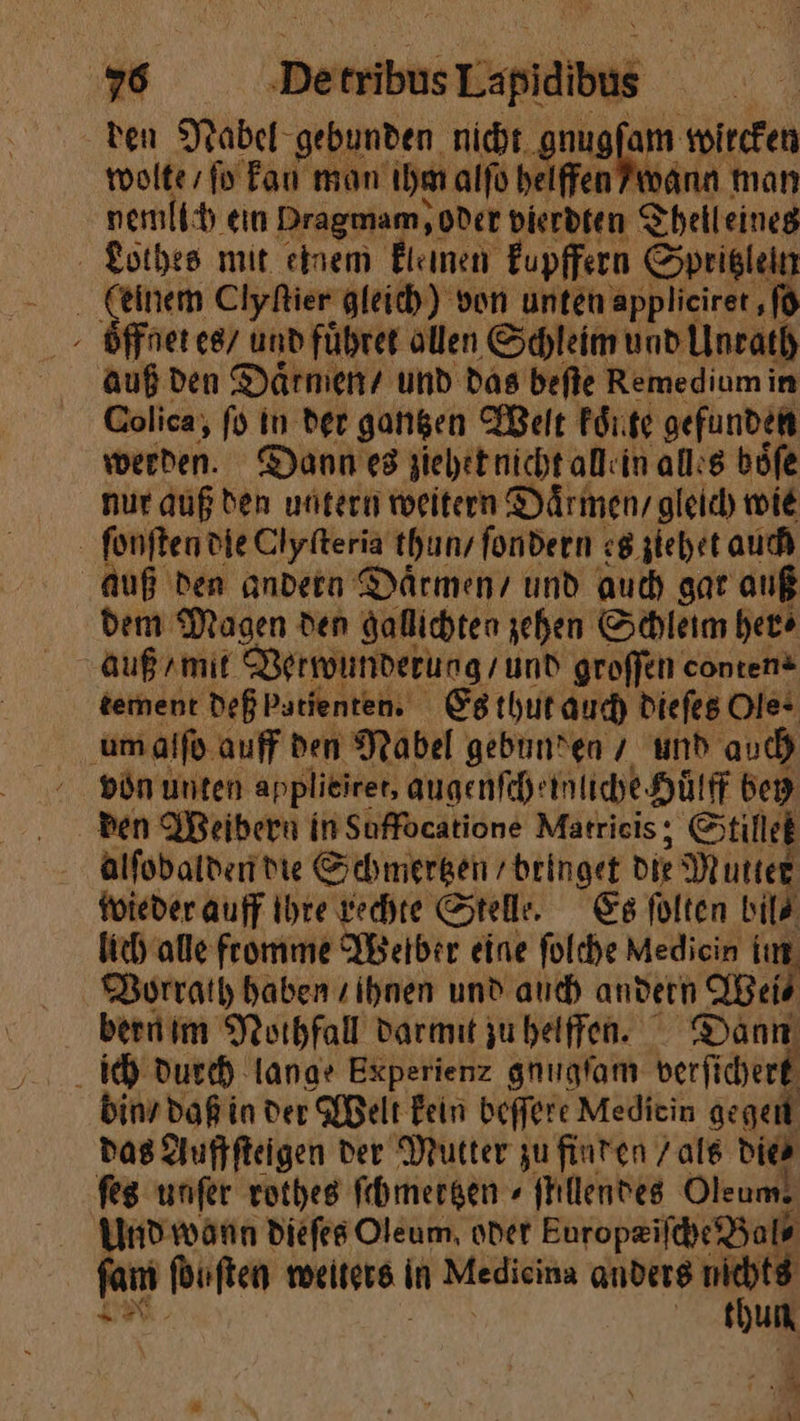 76 De tribus Lapidibus
den Nabel gebunden nicht gnugſam wircken
wolte / ſo kan man ihm alſo helffen / wann man
nemlich ein Dragmam, oder vierdten Theil eines
Lothes mit einem kleinen kupffern Spritzlein
(einem Clyſtier gleich) von unten appliciret, ſo
oͤffnet es / und fuͤhret allen Schleim und Unrath
auß den Daͤrmen / und das beſte Remedium in
Colica, ſo in der gantzen Welt koͤnte gefunden
werden. Dann es ziehet nicht allein alles boͤſe
nur auß den untern weitern Daͤrmen / gleich wie
ſonſten die Clyſteria thun / ſondern es ziehet auch
auß den andern Daͤrmen / und auch gar auß
dem Magen den gallichten zehen Schleim her⸗
auß / mit Verwunderung / und groſſen conten⸗
tement deß Patienten. Es thut auch dieſes Ole⸗
um alſo auff den Nabel gebunden / und auch
von unten appliciret, augenſcheinliche Huͤlff bey
den Weibern in Suffocatione Matricis; Stillet
alſobalden die Schmertzen / bringet die Mutter
wieder auff ihre rechte Stelle. Es ſolten bil⸗
lich alle fromme Weiber eine ſolche Medicin im
Vorrath haben / ihnen und auch andern Wei⸗
bern im Nothfall darmit zu helffen. Dann
ich durch lange Experienz gnugſam verſichert
bin / daß in der Welt kein beſſere Medicin gegen
das Auffſteigen der Mutter zu finden / als die⸗
ſes unſer rothes ſchmertzen⸗ſtillendes Oleum.
Und wann dieſes Oleum, oder Europæiſche Bal⸗
ſam ſonſten weiters in Medicina anders nichts
thun